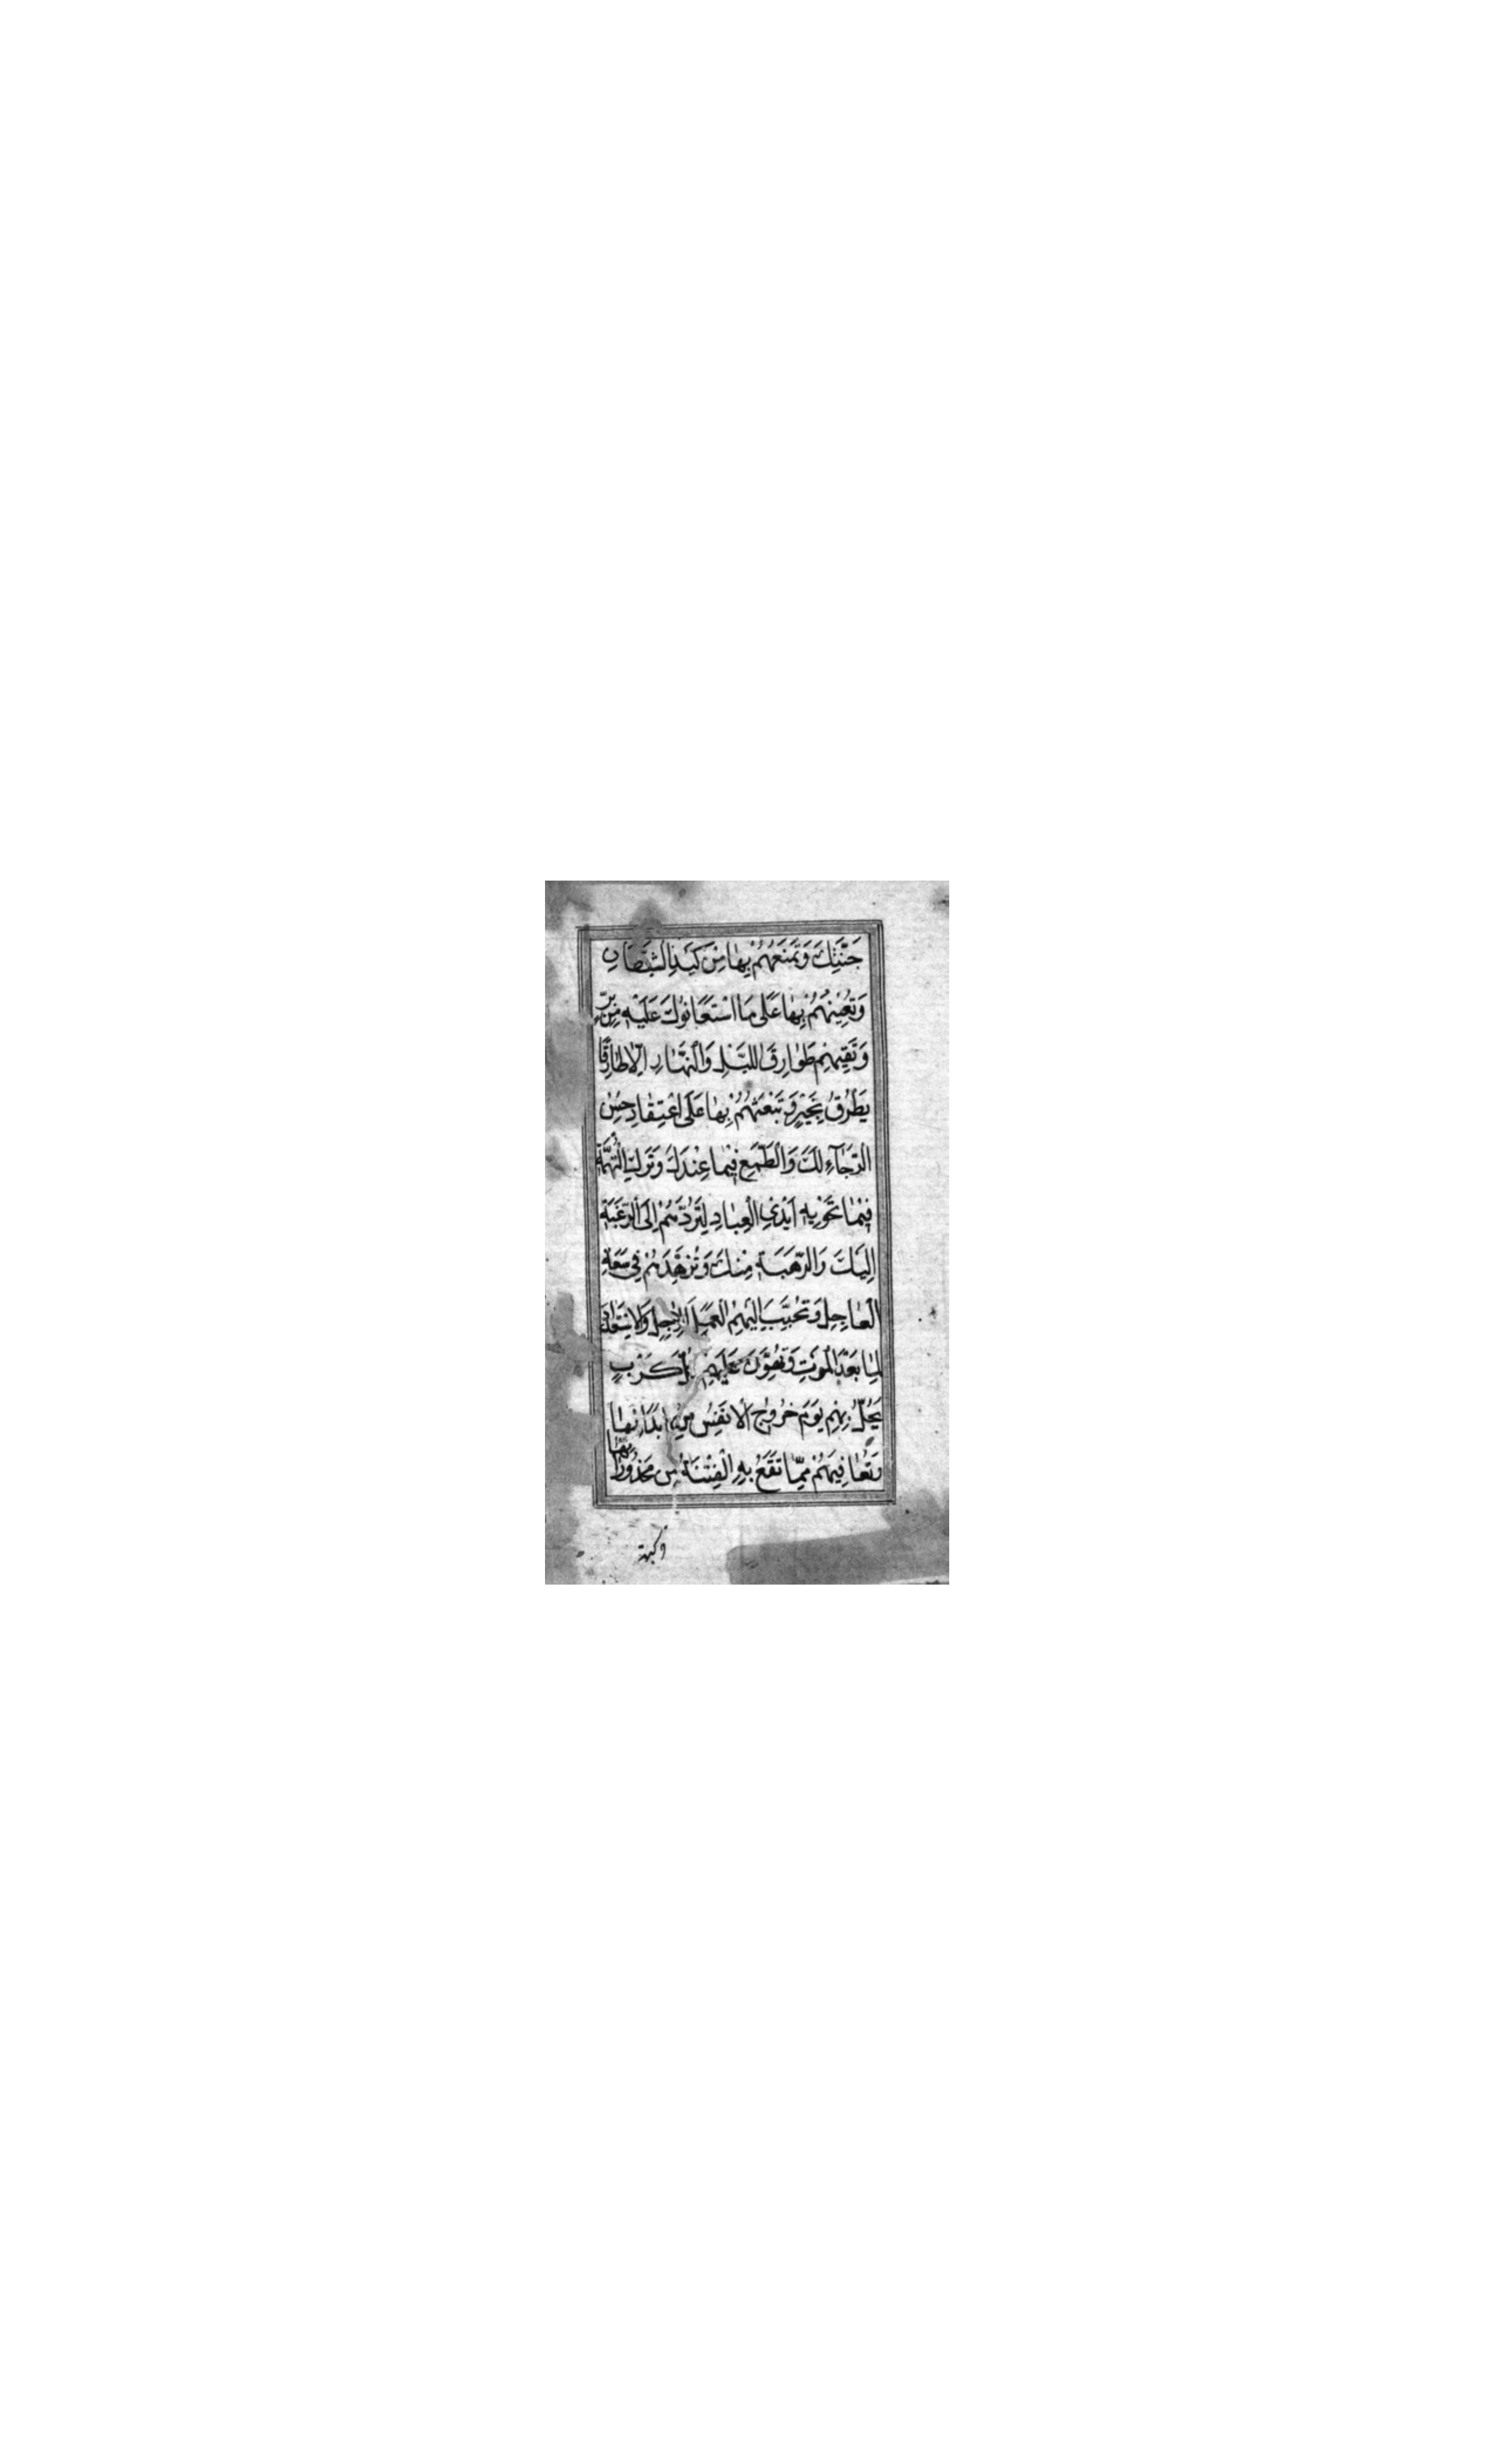 جَنَّتِكَ وَتَمْنَعُهُمْ بِهَا مِنْ كَيْدِ الشَّيْطَانِ
وَتُعِينُهُمْ بِهَا عَلَى مَا اسْتَعَانُوكَ عَلَيْهِ مِنْ بِرٍّ
وَتَقِيهِمْ طَوَارِقَ اللَّيْلِ وَالنَّهَارِ اِلَّا طَارِقًا
يَطْرُقُ بِخَيْرٍ وَتَبْعَثُهُمْ بِهَا عَلَى اعْتِقَادِ حُسْنِ
الرَّجَاءِ لَكَ وَالطَّمَعِ فِيمَا عِنْدَكَ وَتَرْكِ التُّهَمَةِ
فِيمَا تَحْوِيهِ اَيْدِي الْعِبَادِ لِتَرُدَّهُمْ اِلَى الرَّغْبَةِ
اِلَيْكَ وَالرَّهْبَةِ مِنْكَ وَتُزَهِّدَهُمْ فِي سَعَةِ
الْعَاجِلِ وَتُحَبِّبَ اِلَيْهِمُ الْعَمَلَ لِلْآجِلِ وَالِاسْتِعْدَادَ
لِمَا بَعْدَ الْمَوْتِ وَتُهَوِّنَ عَلَيْهِمْ كُلَّ كَرْبٍ
يَحُلُّ بِهِمْ يَوْمَ خُرُوجِ الْاَنْفُسِ مِنْ اَبْدَانِهَا
وَتُعَافِيَهُمْ مِمَّا تَقَعُ بِهِ الْفِتْنَةُ مِنْ مَحْذُورَاتِهَا
وكبة